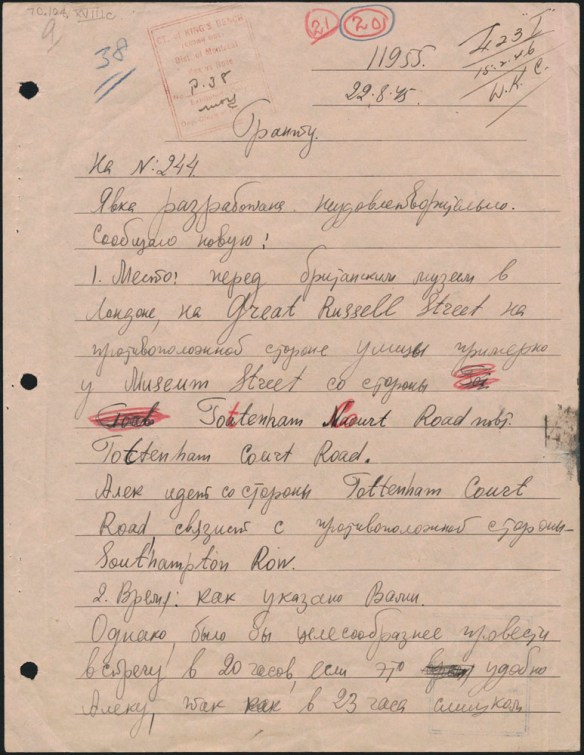 38
21 20
11955.
22.8.45
423 I
15.2.46
W.K.C.
CT. OF KING'S BENCH
P.38
Гранту.
На N: 244
Явка разработана неудовлетворительно.
Сообщаю новую:
1. Место: перед британским музеем в
Лондоне, на Great Russell Street на
противоположной стороне улицы примерно
у Museum Street со стороны
Tottenham Court Road повт.
Tottenham Court Road.
Алек идет со стороны Tottenham Court
Road, связист с противоположной стороны –
Southampton Row.
2. Время: как указано Вами.
Однако, было бы целесообразнее провести
встречу в 20 часов, если это удобно
Алеку, так как в 23 часа слишком